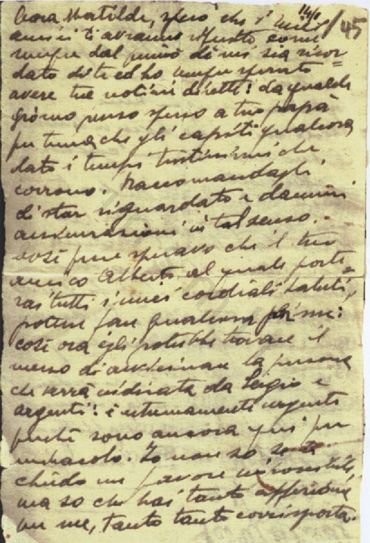 Cara Matilde, spero che i miei
amici ti avranno
dal primo di noi sia ricor
dato di te ed ho sempre sperato
avere tue notizie dirette: da qualche
giorno penso spesso a tuo papà
per tema che gli capiti qualcosa
dato i tempi tristissimi che
corrono. Raccomandagli
di star riguardato e dammi
assicurazioni in tal senso.
così pure speravo che il tuo
amico Alberto al quale porte
rai tutti i miei cordiali saluti,
potesse fare qualcosa per me:
così ora egli potrebbe trovare il
mezzo di avvicinare la persona
che verrà indicata da Sergio e
argenti: è estremamente urgente
perché sono ancora qui per
miracolo. Io non so se
chiedo un favore impossibile,
ma so che hai tanto affezione
per me, tanto tanto corrisposta.
14/1/45